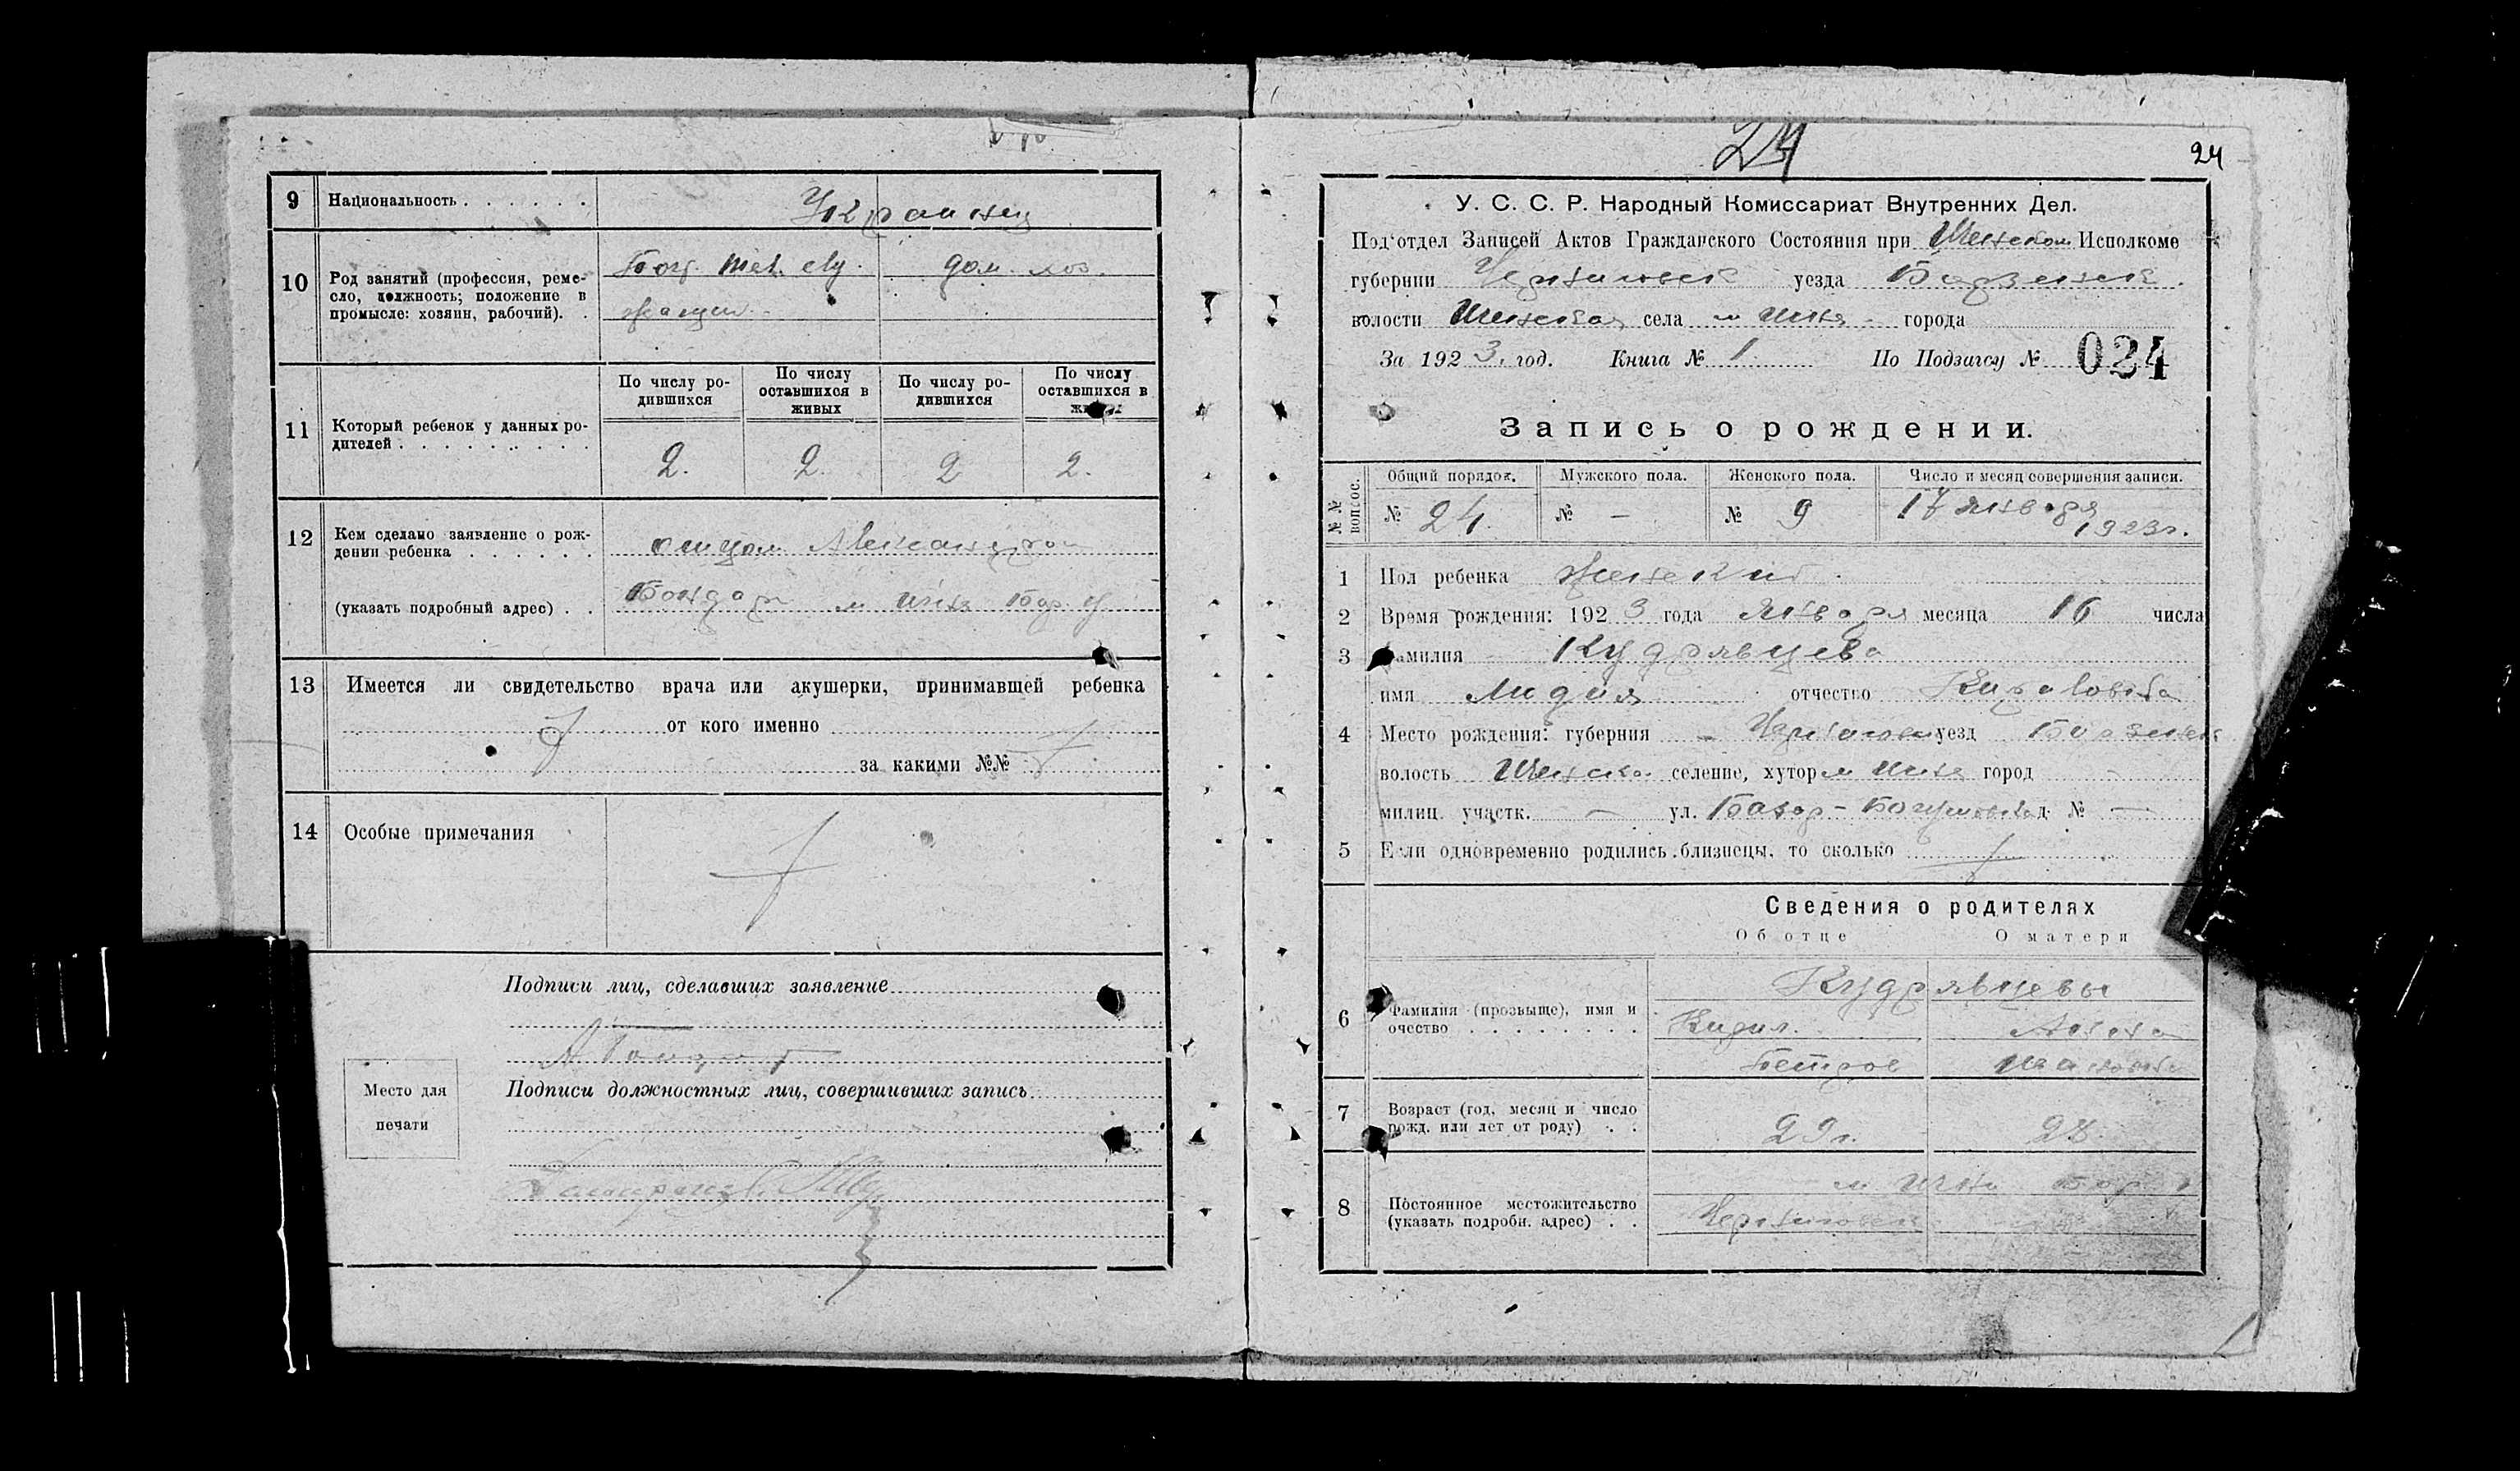 9 Национальность . . . . . . Украинец
10 Род занятий (профессия, реме-
сло, должность; положение в
промысле: хозяин, рабочий). .
дом. хоз.
11 Который ребенок у данных ро-
дителей . . . . . . . . . .
По числу ро-
дившихся
По числу
оставшихся в
живых
По числу ро-
дившихся
По числу
оставшихся в
2. 2. 2 2.
12 Кем сделано заявление о рож-
дении ребенка . . . . . . отцом Александром
(указать подробный адрес) . . Бондарь м Ичня Бор. у
13 Имеется ли свидетельство врача или акушерки, принимавшей ребенка
от кого именно
за какими №№
14 Особые примечания
Подписи лиц, сделавших заявление
Подписи должностных лиц, совершивших запись
Место для
печати
24
24
У. С. С. Р. Народный Комиссариат Внутренних Дел.
Под'отдел Записей Актов Гражданского Состояния при Ичнском Исполкоме
губернии Черниговск уезда Борзенск
волости Ичнской села м Ичня города
За 1923. год. Книга № 1 По Подзагсу № 024
Запись о рождении.
№№ вопрос.
Общий порядок. Мужского пола. Женского пола. Число и месяц совершения записи.
№ 24 № — № 9 17 января
1923г.
1 Пол ребенка женский
2 Время рождения: 1923 года января месяца 16 числа
3 Фамилия Кудрявцева
имя Лидия отчество Кириловна
4 Место рождения: губерния Черниговск уезд Борзенск
волость Ичнско селение, хутор м Ичня город —
милиц. участк. — ул. д. № —
5 Если одновременно родились близнецы, то сколько
Сведения о родителях
Об отце О матери
6 Фамилия (прозвыще), имя и
очество . . . . . . . .
Кудрявцевы
Кирил. Анна
Петров Ивановна
7 Возраст (год, месяц и число
рожд. или лет от роду) . .
29г. 28
8 Постоянное местожительство
(указать подробн. адрес) . .
м Ичня Бор у
Черниговск